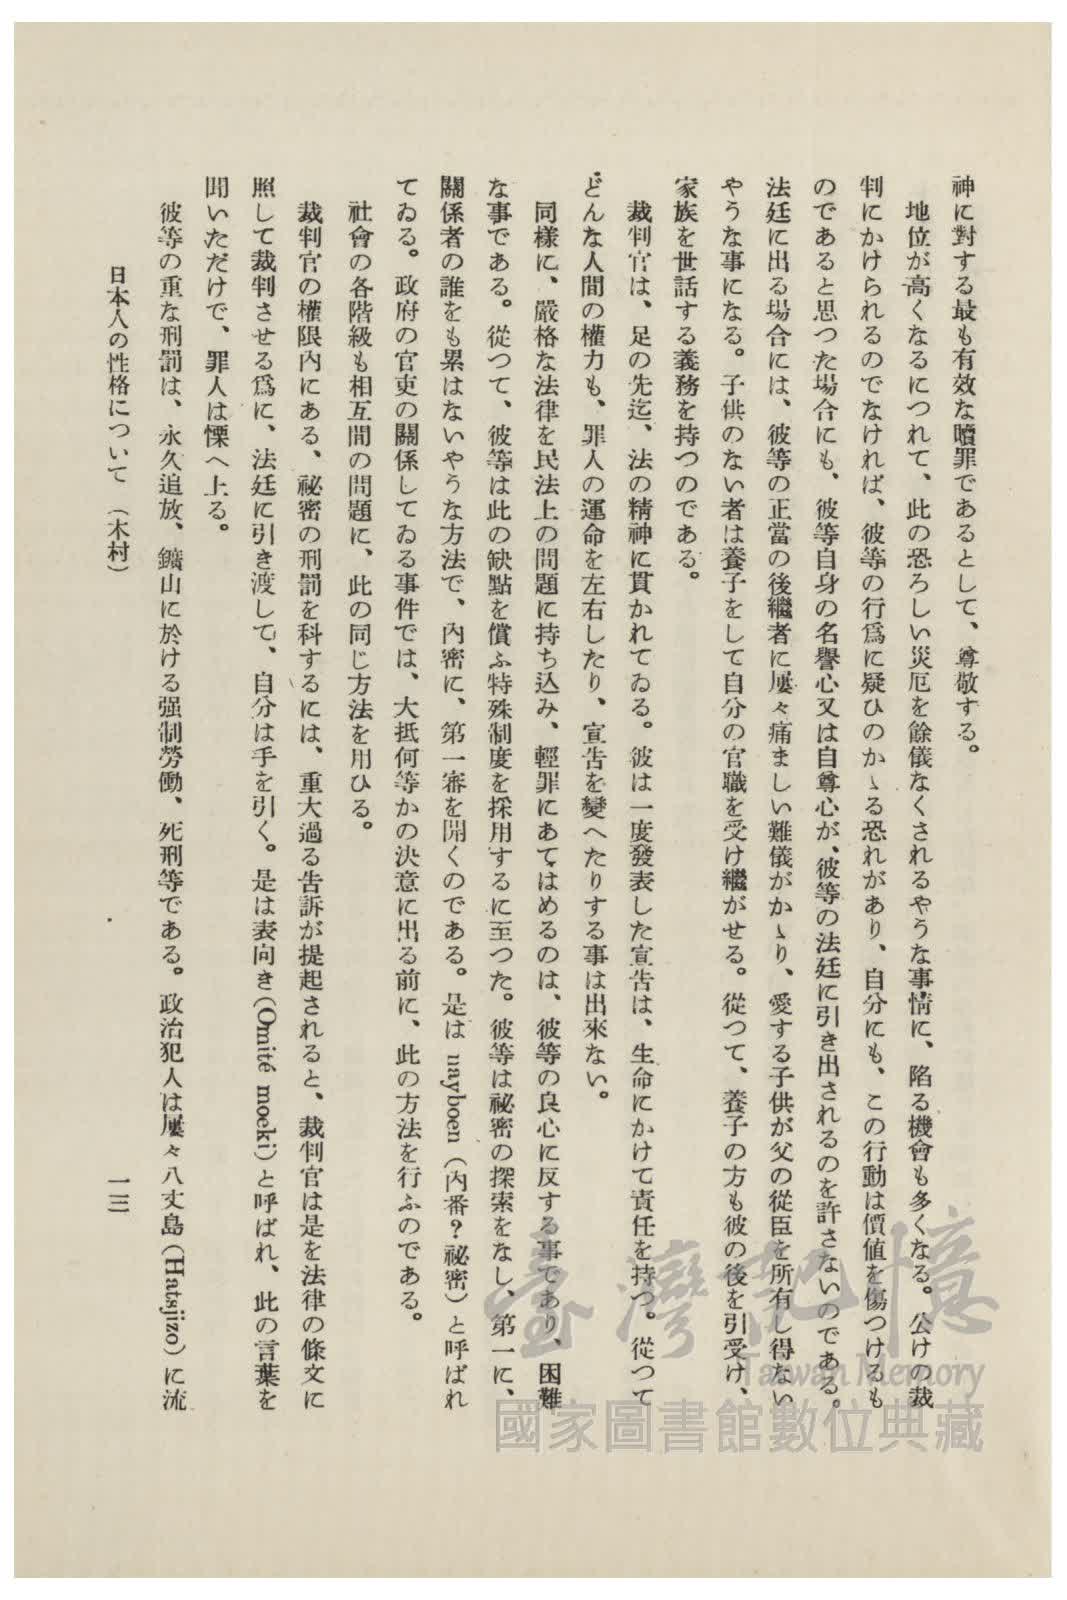 神に對する最も有效な贖罪であるとして、尊敬する。
地位が高くなるにつれて、此の恐ろしい災厄を餘儀なくされるやうな事情に、陷る機會も多くなる。公けの裁
判にかけられるのでなければ、彼等の行爲に疑ひのかゝる恐れがあり、自分にも、この行動は價値を傷つけるも
のであると思つた場合にも、彼等自身の名譽心又は自尊心が、彼等の法廷に引き出されるのを許さないのである。
法廷に出る場合には、彼等の正當の後繼者に屢々痛ましい難儀がかゝり、愛する子供が父の從臣を所有し得ない
やうな事になる。子供のない者は養子をして自分の官職を受け繼がせる。從つて、養子の方も彼の後を引受け、
家族を世話する義務を持つのである。
裁判官は、足の先迄、法の精神に貫かれてゐる。彼は一度發表した宣告は、生命にかけて責任を持つ。從つて
どんな人間の權力も、罪人の運命を左右したり、宣告を變へたりする事は出來ない。
同樣に、嚴格な法律を民法上の問題に持ち込み、輕罪にあてはめるのは、彼等の良心に反する事であり、困難
な事である。從つて、彼等は此の缺點を償ふ特殊制度を採用するに至つた。彼等は祕密の探索をなし、第一に、
關係者の誰をも累はないやうな方法で、內密に、第一審を開くのである。是は nayboen（內番?祕密）と呼ばれ
てゐる。政府の官吏の關係してゐる事件では、大抵何等かの決意に出る前に、此の方法を行ふのである。
社會の各階級も相互間の問題に、此の同じ方法を用ひる。
裁判官の權限內にある、祕密の刑罰を科するには、重大過る告訴が提起されると、裁判官は是を法律の條文に
照して裁判させる爲に、法廷に引き渡して、自分は手を引く。是は表向き（Omité moeki）と呼ばれ、此の言葉を
聞いただけで、罪人は慄へ上る。
彼等の重な刑罰は、永久追放、鑛山に於ける强制勞働、死刑等である。政治犯人は屢々八丈島（Hatsjizo）に流
日本人の性格について（木村）
一三
臺灣記憶
Taiwan Memory
國家圖書館數位典藏